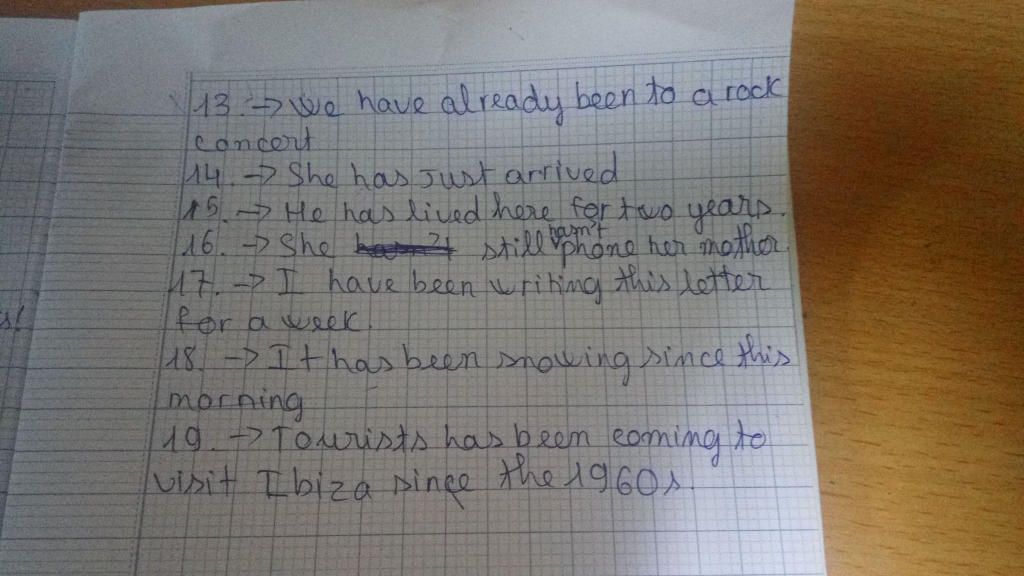 13. → We have already been to a rock
concert
14. → She has just arrived
15. → He has lived here for two years.
16. → She still hasn't phone her mother.
17. → I have been writing this letter
for a week.
18. → It has been snowing since this
morning
19. → Tourists has been coming to
visit Ibiza since the 1960s.
s!